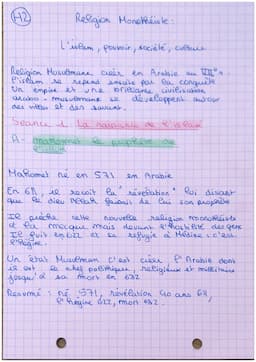 H2
Religion Monothéiste :
L'islam, pouvoir, société, culture
Religion Musulmane créer en Arabie au VIIe s
l'islam se repend ensuite par la conquête
Un empire et une brillante civilisation
arabo-musulmane se développent autour
des villes et des savant.
Séance 1. La naissance de l'islam
A - Mahomet le prophète de
Mahomet né en 571 en Arabie
En 611, il reçoit la "révélation" lui disant
que le dieu Allah faisais de lui son prophète
Il prêche cette nouvelle religion monothéiste
à la mecque mais devant l'hostilité des gens
Il fuit en 622 et se refugie à Médine : c'est
l'Hégire.
Un état Musulman c'est créer l'Arabie dont
il est le chef politique, religieux et militaire
jusqu'à sa mort en 632
Resumé : né 571, révélation 40 ans 611,
l'Hégire 622, mort 632.